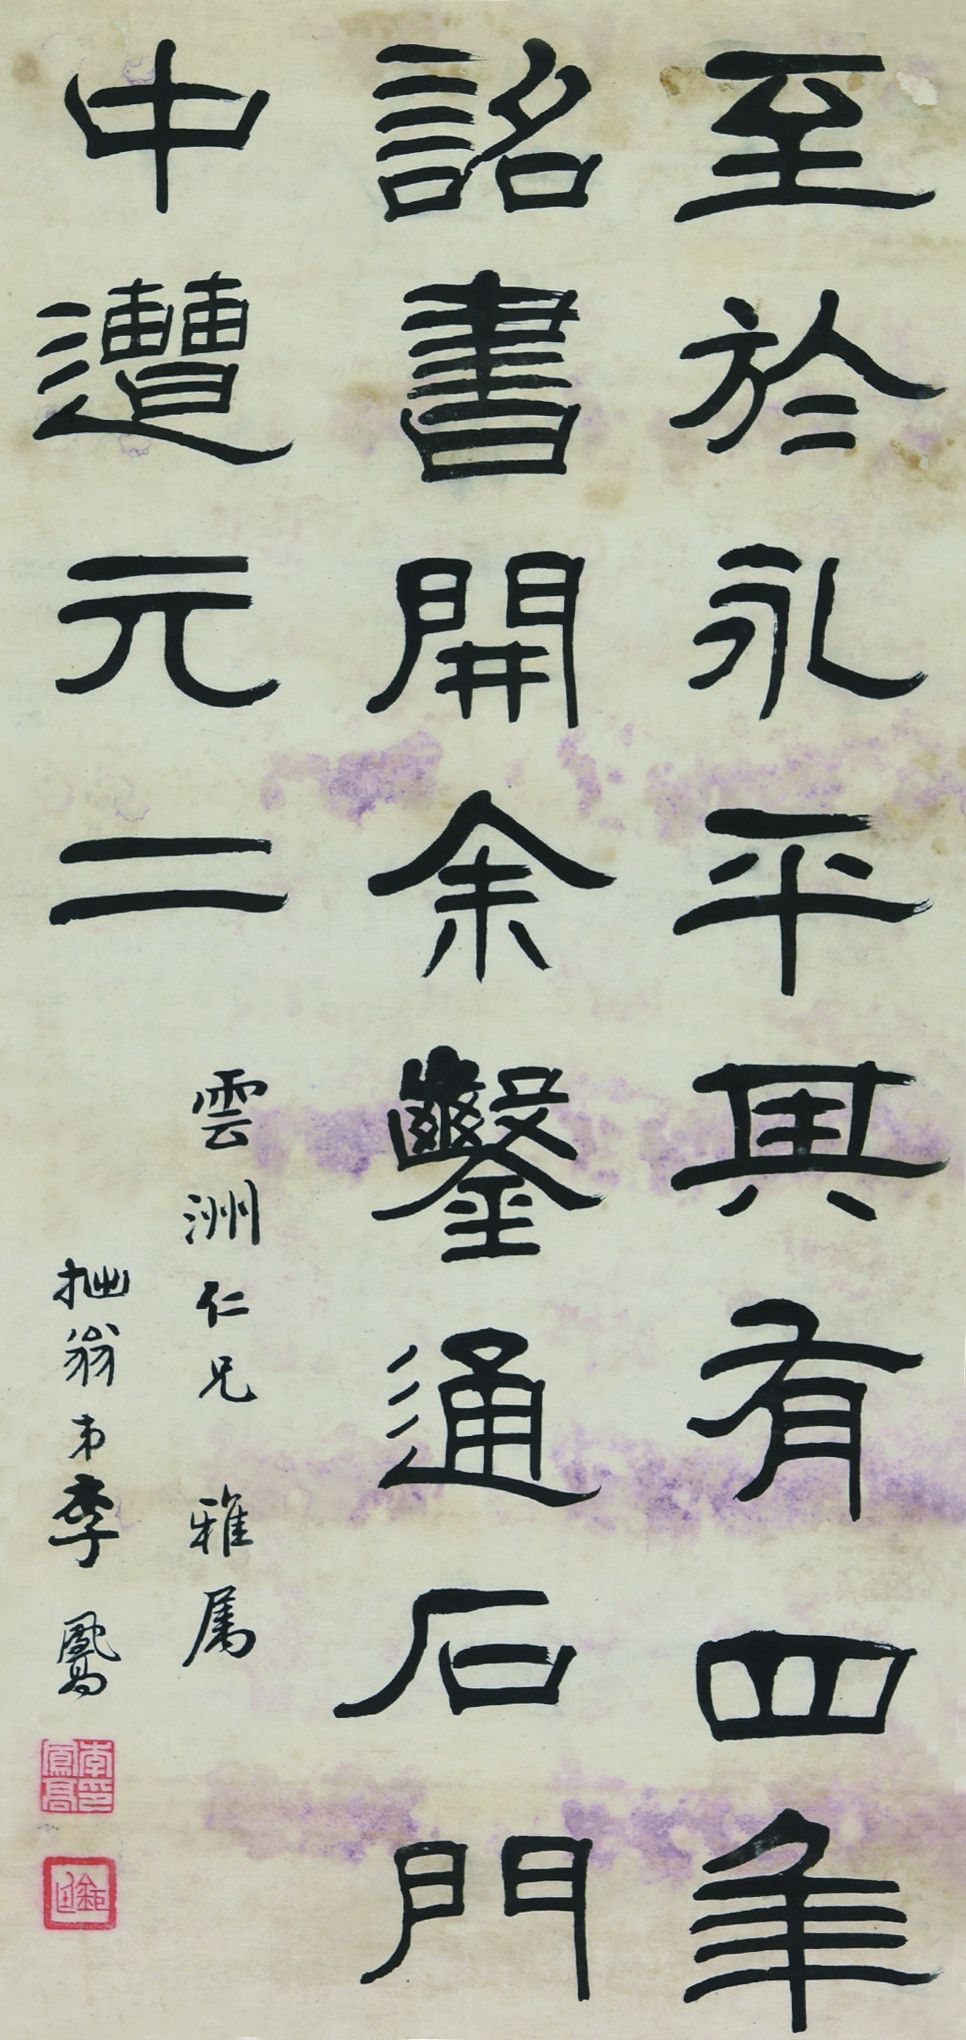 至於永平其有四年
詔書開余鑿通石門
中遭元二
雲洲仁兄 雅属
拙翁弟李鳳高
李印鳳高